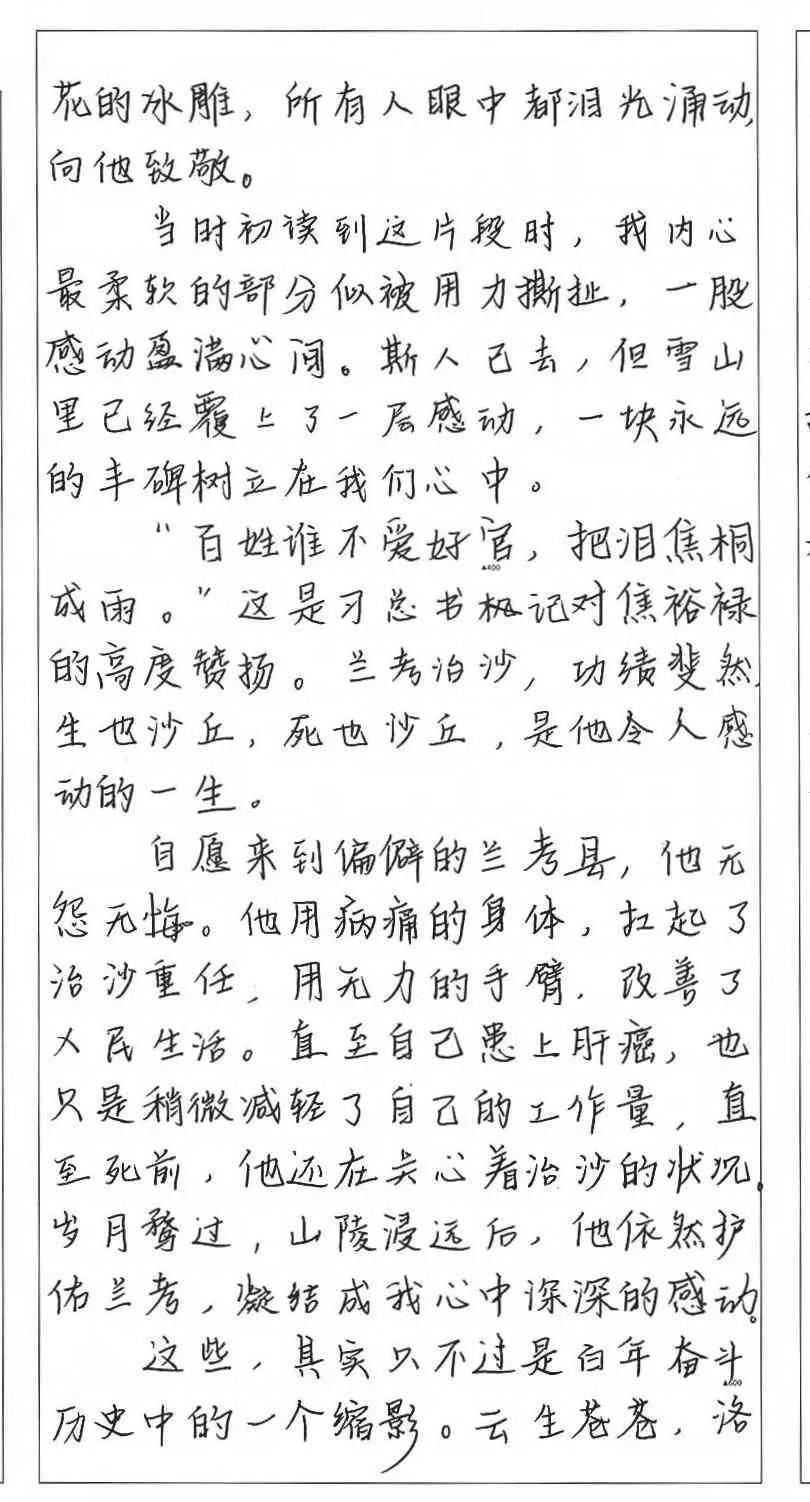 花的冰雕，所有人眼中都泪光涌动，
向他致敬。
当时初读到这片段时，我内心
最柔软的部分似被用力撕扯，一股
感动盈满心间。斯人已去，但雪山
里已经覆上了一层感动，一块永远
的丰碑树立在我们心中。
“百姓谁不爱好官，把泪焦桐
▲400
成雨。”这是习总书记对焦裕禄
的高度赞扬。兰考治沙，功绩斐然，
生也沙丘，死也沙丘，是他令人感
动的一生。
自愿来到偏僻的兰考县，他无
怨无悔。他用病痛的身体，扛起了
治沙重任，用无力的手臂，改善了
人民生活。直至自己患上肝癌，也
只是稍微减轻了自己的工作量，直
至死前，他还在关心着治沙的状况。
岁月骛过，山陵浸远后，他依然护
佑兰考，凝结成我心中深深的感动。
这些，其实只不过是百年奋斗
▲600
历史中的一个缩影。云生苍苍，洛